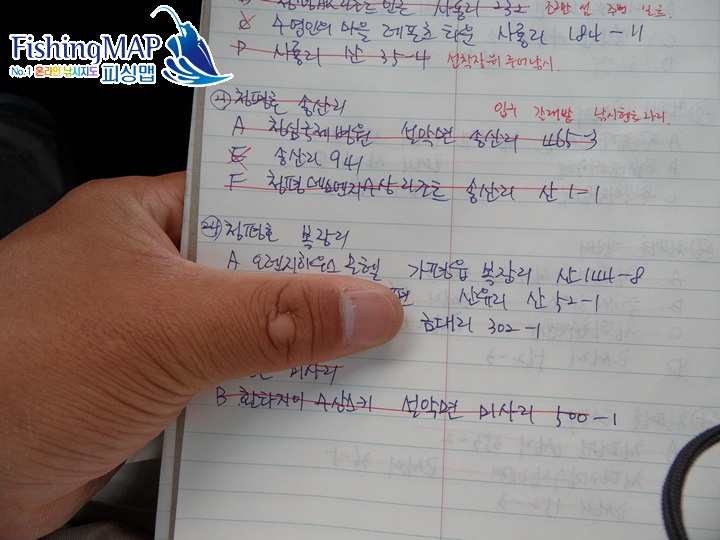 FishingMAP
No.1 온라인 낚시지도 피싱맵
사룡리 232
수영인의 마을 레포츠 타운 사룡리 184-11
D 사룡리 산 35-4 선착장위 루어낚시
청평호 송산리
입구 갈대밭
A 청심국제병원 설악면 송산리 465-3
E 송산리 941
F 청평 에스엔지수상리조트 송산리 산 1-1
청평호 복장리
A 오렌지하우스 모텔 가평읍 복장리 산 144-8
산유리 산 52-1
금대리 302-1
미사리
B 환타지아 수상스키 설악면 미사리 500-1